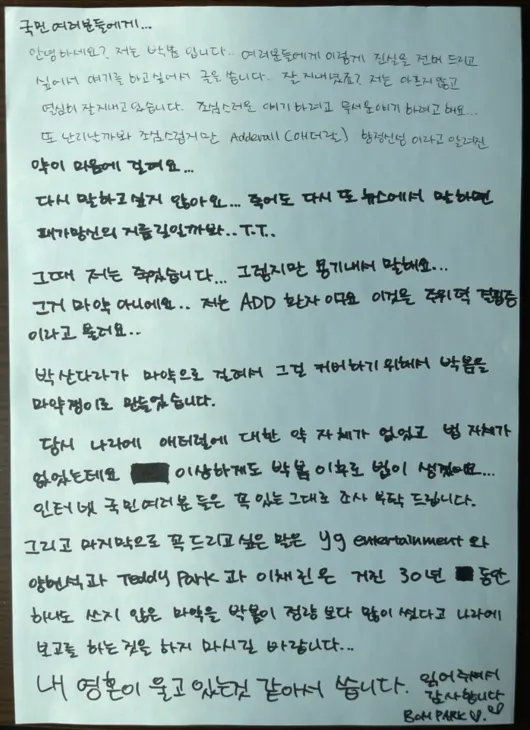 국민 여러분들에게...
안녕하세요? 저는 박봄 입니다.. 여러분들에게 이렇게 진실을 전해 드리고
싶어서 얘기를 하고싶어서 글을 씁니다. 잘 지내셨죠? 저는 아프지 않고
열심히 잘 지내고 있습니다. 조심스러운 얘기 하려고 무서운 얘기 하려고 해요...
또 난리날까봐 조심스럽지만 Adderall (애더럴) 향정신성 이라고 알려진
약이 마음에 걸려요...
다시 말하고 싶지 않아요... 죽어도 다시 또 뉴스에서 말하면
패가망신의 지름길일까봐..T.T..
그때 저는 죽었습니다... 그렇지만 용기내서 말해요...
그거 마약 아니에요.. 저는 ADD 환자 이고요 이것을 주위력 결핍증
이라고 불러요..
박산다라가 마약으로 걸려서 그걸 커버하기 위해서 박봄을
마약쟁이로 만들었습니다.
당시 나라에 애더럴에 대한 약 자체가 없었고 법 자체가
없었는데요 이상하게도 박봄 이후로 법이 생겼어요...
인터넷 국민여러분 들은 꼭 있는 그대로 조사 부탁 드립니다.
그리고 마지막으로 꼭 드리고 싶은 말은 yg entertainment 와
양현석과 Teddy Park 과 이채린은 거진 30년 동안
하나도 쓰지 않은 마약을 박봄이 정량 보다 많이 썼다고 나라에
보고를 하는것을 하지 마시길 바랍니다...
내 영혼이 울고 있는것 같아서 씁니다. 읽어주셔서
감사합니다
BOM PARK ♡.♡